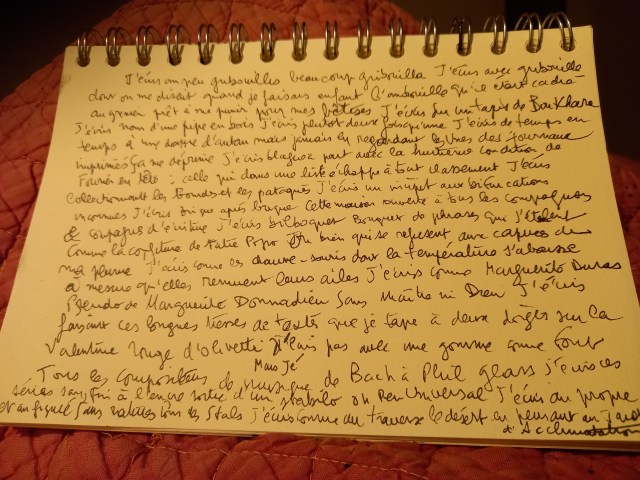 J'écris un peu gribouilles beaucoup gribouilla J'écris avec gribouille
dont on me disait quand je faisais enfant qu'il était caché
au grenier prêt à me punir pour mes bêtises J'écris sur un tapis de Boukhara
J'écris nom d'une pipe en bois J'écris plutôt deux J'écris de temps en
temps à mais jamais en regardant les unes des journaux
imprimées ça me déprime J'écris blague à part avec la huitième condition de
Fourier en tête : celle qui dans une liste échappe à tout classement J'écris
collectionnant les bonds et les pataquès J'écris un aux bifurcations
inconnues J'écris brique après brique cette maison ouverte à tous les compagnons
& d'écriture J'écris bilboquet Bouquet de phrases qui s'étalent
comme la confiture de Tatie Popo Ou bien qui se refusent aux caprices de
ma plume J'écris comme ces chauve-souris dont la température s'abaisse
à mesure qu'elles remuent leurs ailes J'écris comme Marguerite Duras
Pseudo de Marguerite Donnadieu Sans Maître ni Dieu J'écris
faisant ces longues de textes que je tape à deux doigts sur la
Valentine rouge d'Olivetti J'écris pas avec une gomme comme font
Tous les compositeurs de musique de Bach à Phil Glass Mais J'é J'écris ces
séries sans fin à l'encre sortie d'un stabilo ou Pen Universal J'écris au propre
et au figuré Sans ratures tous les J'écris comme on traverse le désert en pensant au Jardin
d'Acclimatation